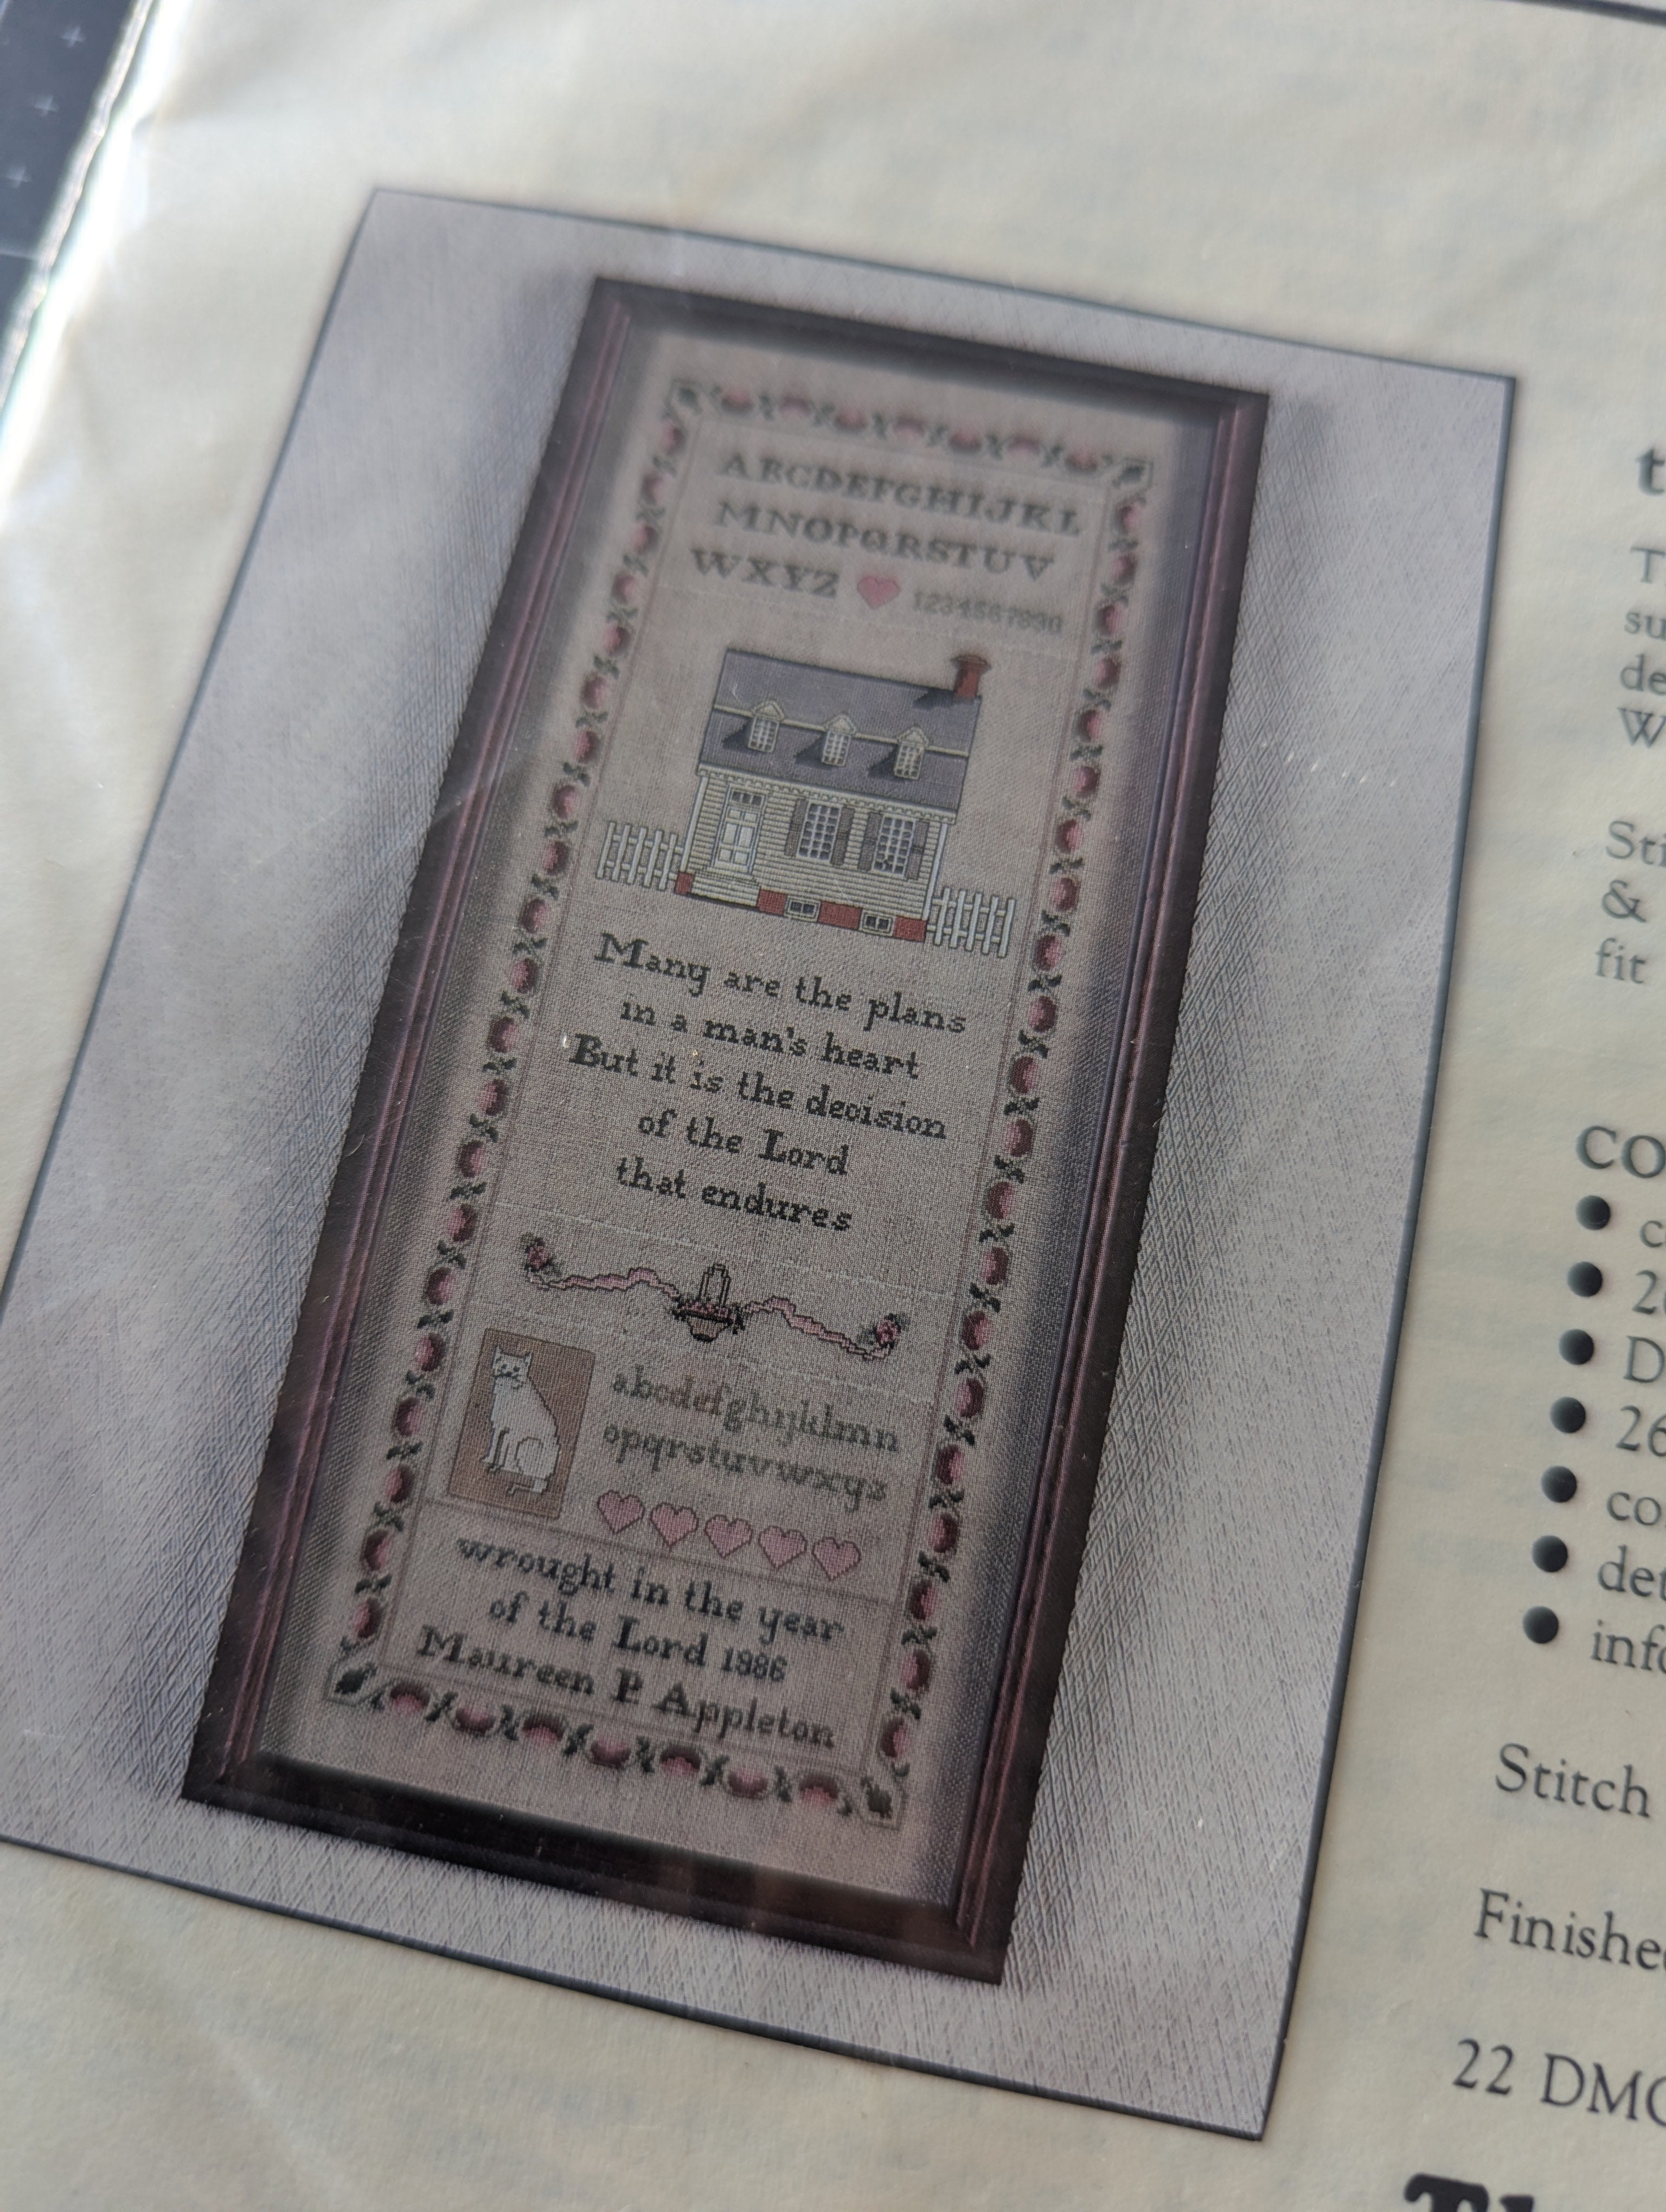 ABCDEFGHIJKL
MNOPQRSTUV
WXYZ 1234567890
Many are the plans
in a man's heart
But it is the decision
of the Lord
that endures
abcdefghijklmn
opqrstuvwxyz
wrought in the year
of the Lord 1986
Maureen P. Appleton
W
&
fit
Stitch
22